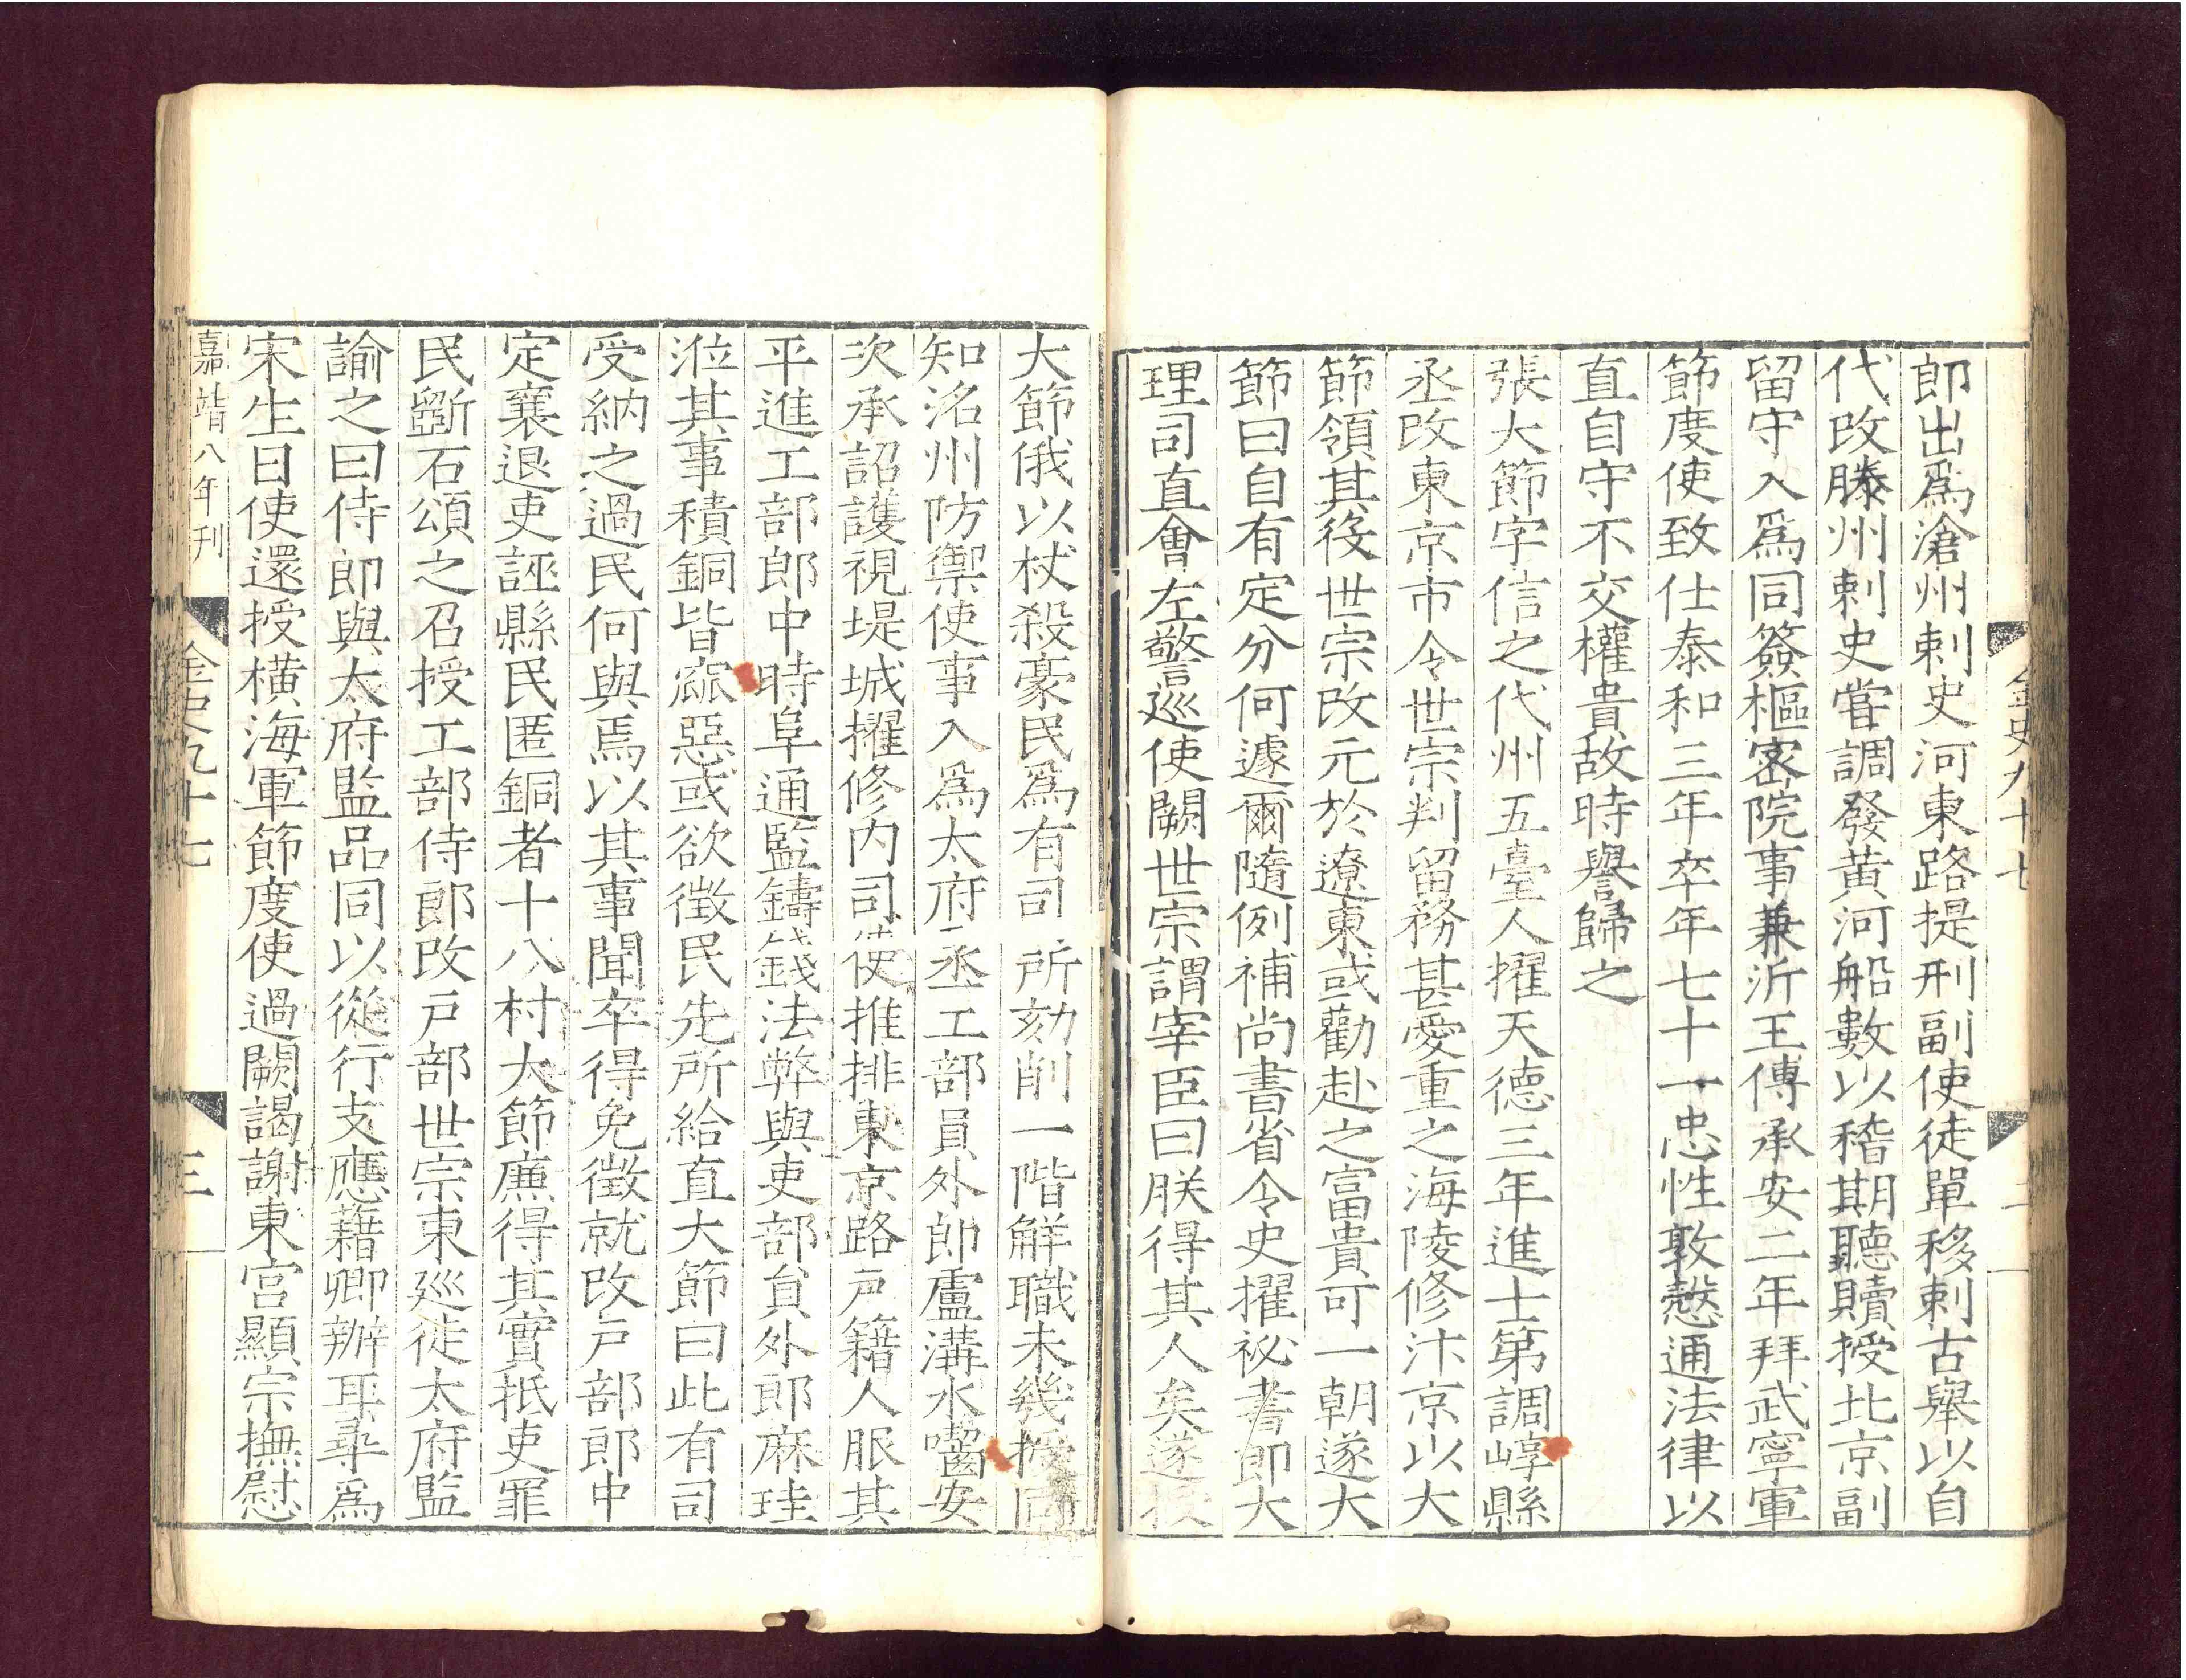 金史九十七
二
郎出爲滄州刺史河東路提刑副使徒單移剌古舉以自
代改滕州刺史嘗調發黄河船數以稽期聽贖授北京副
留守入爲同簽樞密院事兼沂王傅承安二年拜武寧軍
節度使致仕泰和三年卒年七十一忠性敦慤通法律以
直自守不交權貴故時譽歸之
張大節字信之代州五臺人擢天德三年進士第調崞縣
丞改東京市令世宗判留務甚愛重之海陵修汴京以大
節領其役世宗改元於遼東或勸赴之富貴可一朝遂大
節曰自有定分何遽爾隨例補尚書省令史擢祕書郎大
理司直會左警巡使闕世宗謂宰臣曰朕得其人矣遂授
大節俄以杖殺豪民爲有司所劾削一階解職未幾授同
知洺州防禦使事入爲太府丞工部員外郎盧溝水囓安
次承詔護視堤城擢修内司使推排東京路戸籍人服其
平進工部郎中時阜通監鑄錢法弊與吏部員外郎麻珪
涖其事積銅皆窳惡或欲徵民先所給直大節曰此有司
受納之過民何與焉以其事聞卒得免徵就改戸部郎中
定襄退吏誣縣民匿銅者十八村大節廉得其實抵吏罪
民斲石頌之召授工部侍郎改戸部世宗東巡徒太府監
諭之曰侍郎與太府監品同以從行支應藉卿辦耳尋爲
宋生日使還授橫海軍節度使過闕謁謝東宮顯宗撫慰
嘉靖八年刊
金史九十七
三